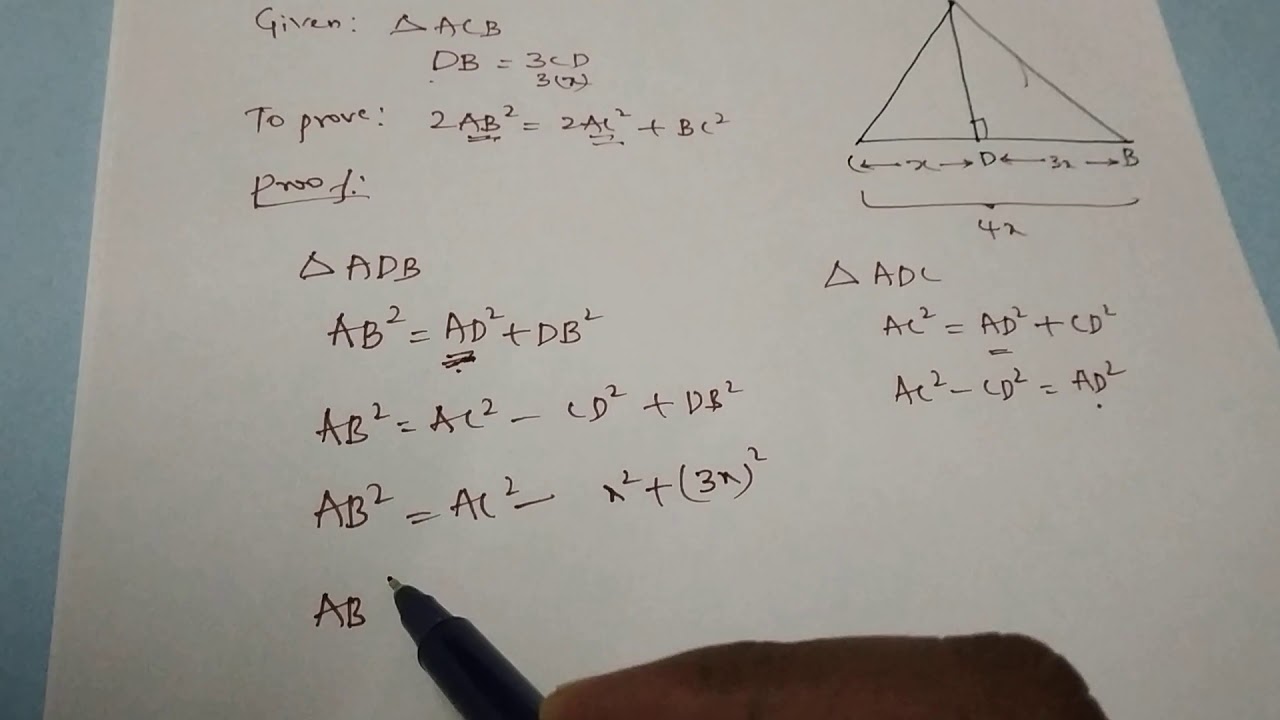 Given: △ ACB
DB = 3CD
3(x)
To prove: 2AB² = 2AC² + BC²
Proof:
C ←x→ D ←3x→ B
4x
△ ADB
AB² = AD² + DB²
AB² = AC² - CD² + DB²
AB² = AC² - x² + (3x)²
AB
△ ADC
AC² = AD² + CD²
AC² - CD² = AD²